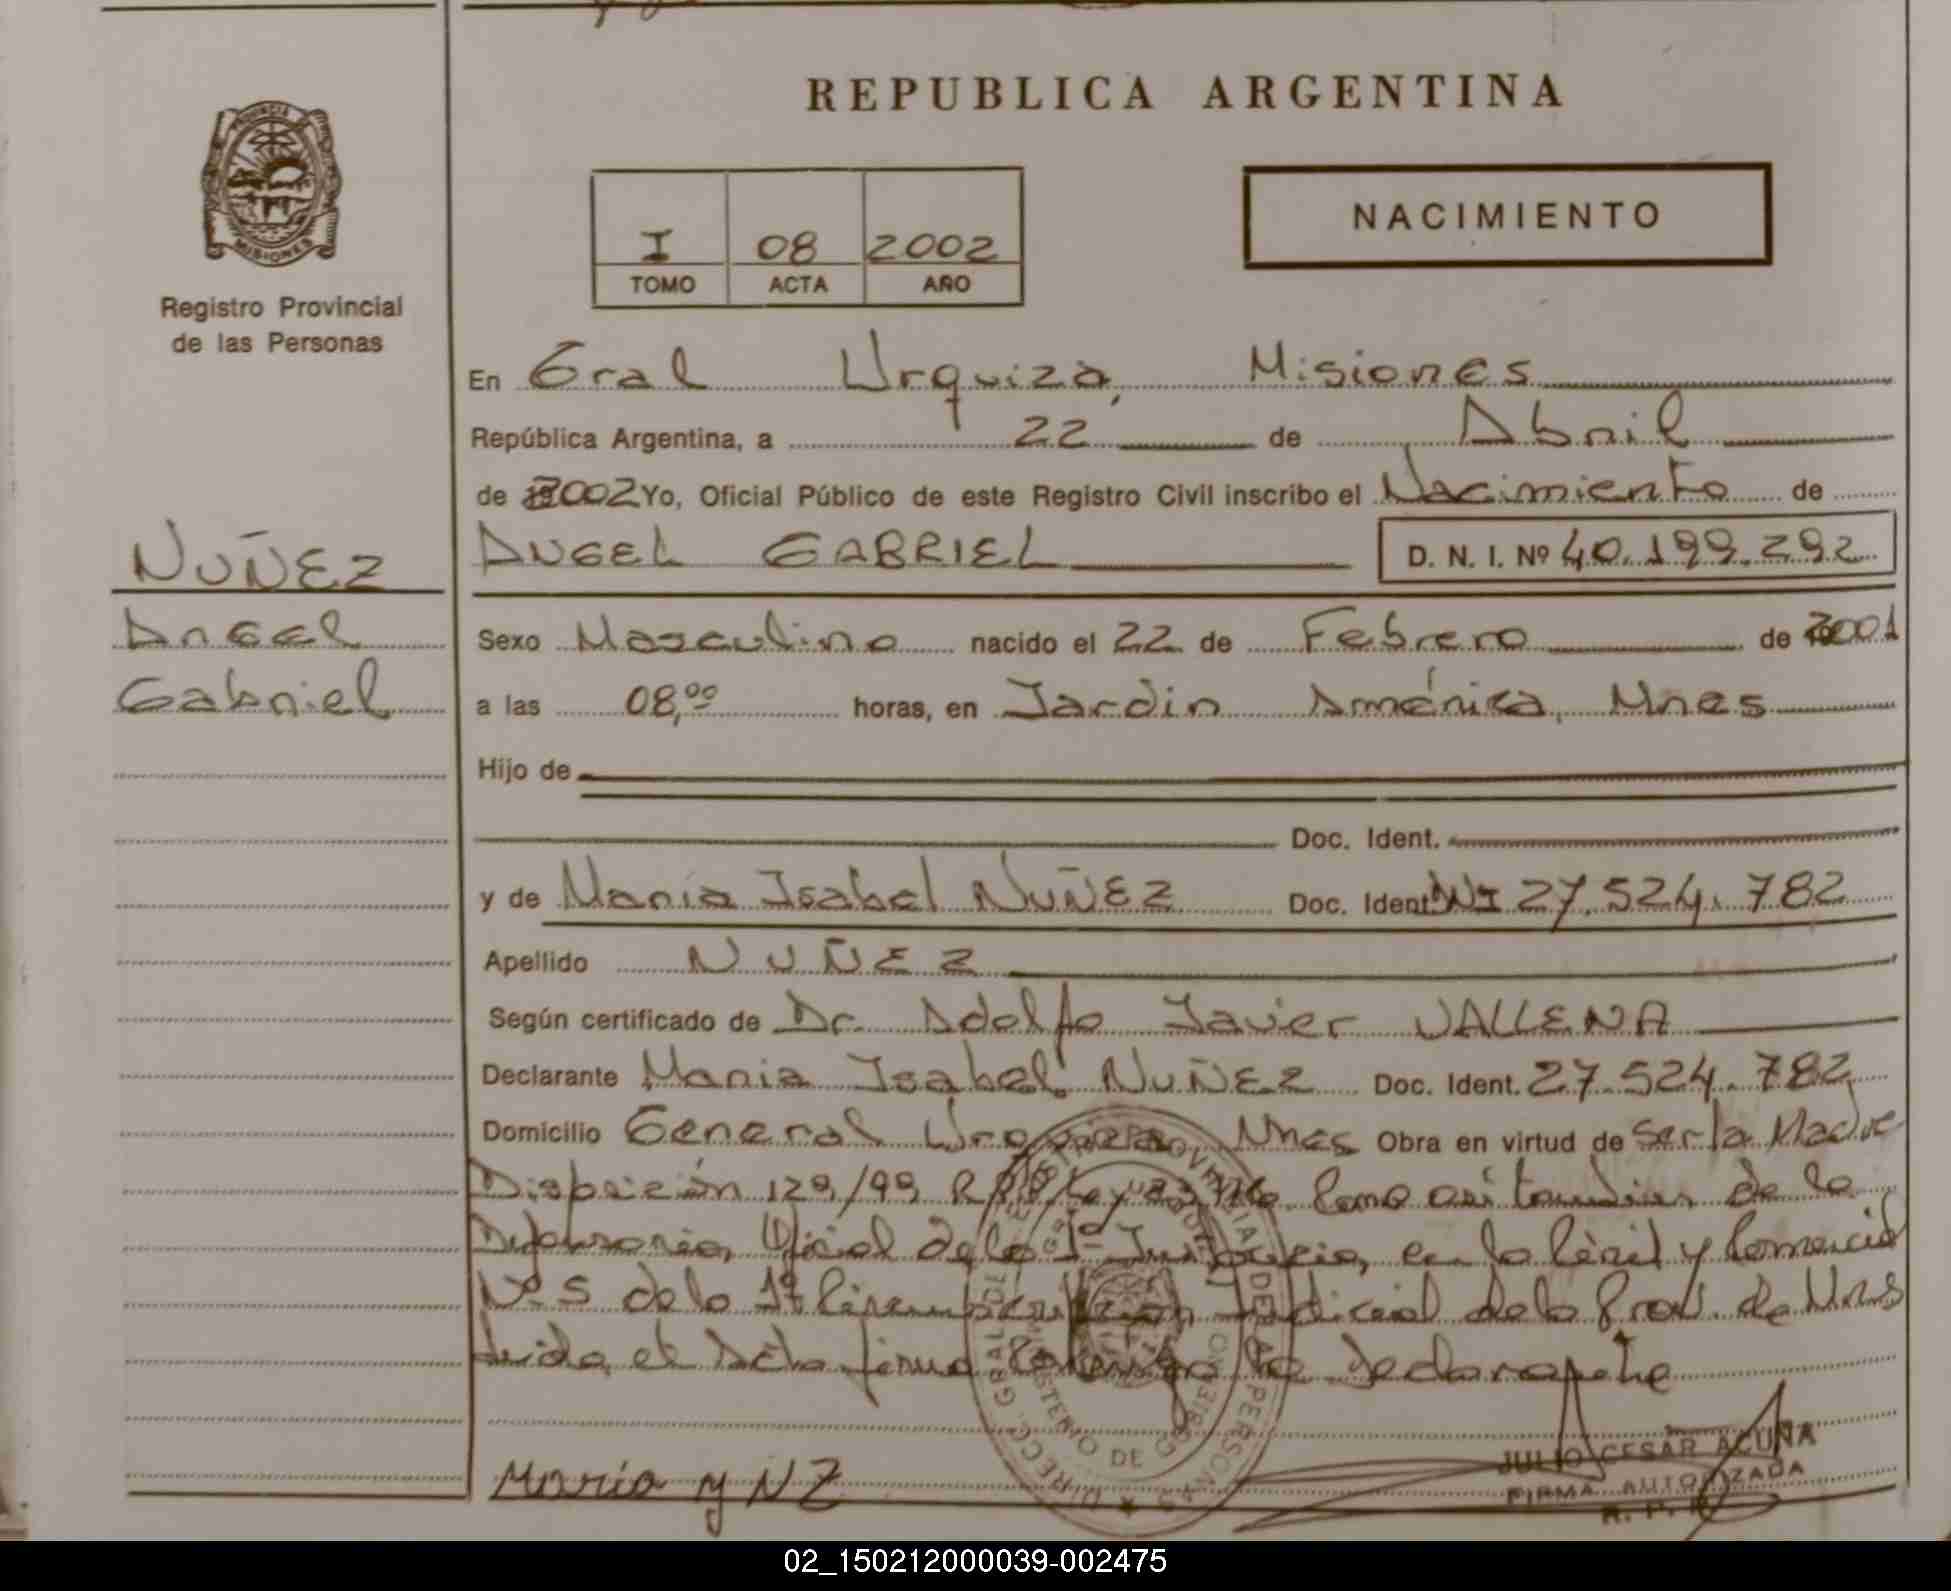 REPUBLICA ARGENTINA
PROVINCIA DE
MISIONES
Registro Provincial
de las Personas
NACIMIENTO
I 08 2002
TOMO ACTA AÑO
En Gral Urquiza, Misiones
República Argentina, a 22 de Abril
de 2002 Yo, Oficial Público de este Registro Civil inscribo el Nacimiento de
NUÑEZ
Angel
Gabriel
ANGEL GABRIEL D. N. I. Nº 40.199.292
Sexo Masculino nacido el 22 de Febrero de 2001
a las 08,00 horas, en Jardin América, Mnes
Hijo de
Doc. Ident.
y de Maria Isabel NUÑEZ Doc. Ident. 27.524.782
Apellido NUÑEZ
Según certificado de Dr. Adolfo Javier VALLENA
Declarante Maria Isabel NUÑEZ Doc. Ident. 27.524.782
Domicilio General Urquiza Mnes Obra en virtud de ser la Madre
Disposición 129/99 como asi tambien de la
Defensoria Oficial de la 1º Instancia en lo Civil y Comercial
Nº 5 de la 1º Circunscripción Judicial de la Prov. de Mnes
leida el Acta firma conmigo la declarante
Maria y NZ
JULIO CESAR ACUÑA
FIRMA AUTORIZADA
R. P. P.
02_150212000039-002475